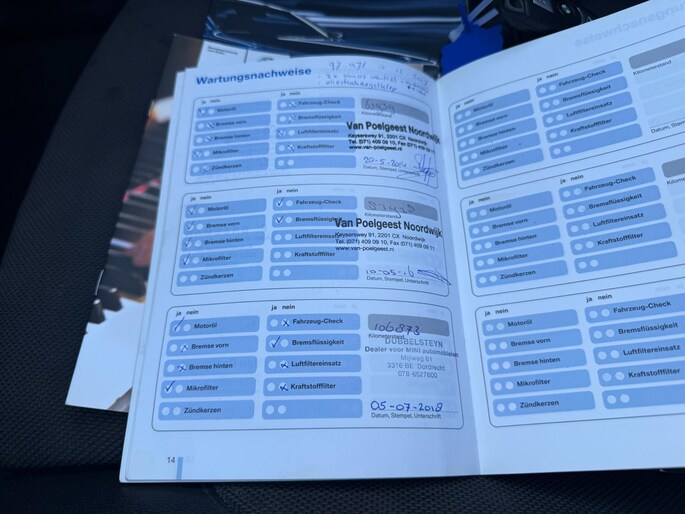 Wartungsnachweise
ja nein
ja nein
Motoröl
Fahrzeug-Check
Bremse vorn
Bremsflüssigkeit
Bremse hinten
Luftfiltereinsatz
Mikrofilter
Kraftstofffilter
Zündkerzen
Van Poelgeest Noordwijk
Keyserswey 91, 2201 CX Noordwijk
Tel. (071) 409 09 10, Fax (071) 409 09 11
www.van-poelgeest.nl
Datum, Stempel, Unterschrift
ja nein
ja nein
Motoröl
Fahrzeug-Check
Bremse vorn
Bremsflüssigkeit
Bremse hinten
Luftfiltereinsatz
Mikrofilter
Kraftstofffilter
Zündkerzen
Kilometerstand
Van Poelgeest Noordwijk
Keyserswey 91, 2201 CX Noordwijk
Tel. (071) 409 09 10, Fax (071) 409 09 11
www.van-poelgeest.nl
10-05-16
Datum, Stempel, Unterschrift
ja nein
ja nein
Motoröl
Fahrzeug-Check
Bremse vorn
Bremsflüssigkeit
Bremse hinten
Luftfiltereinsatz
Mikrofilter
Kraftstofffilter
Zündkerzen
106873
Kilometerstand
DUBBELSTEYN
Dealer voor MINI automobielen
Mijlweg 61
3316 BE Dordrecht
078-6527600
05-07-2018
Datum, Stempel, Unterschrift
14
ja nein
ja nein
Motoröl
Fahrzeug-Check
Bremse vorn
Bremsflüssigkeit
Bremse hinten
Luftfiltereinsatz
Mikrofilter
Kraftstofffilter
Zündkerzen
Kilometerstand
Datum, Stempel
ja nein
ja nein
Motoröl
Fahrzeug-Check
Bremse vorn
Bremsflüssigkeit
Bremse hinten
Luftfiltereinsatz
Mikrofilter
Kraftstofffilter
Zündkerzen
ja nein
ja nein
Motoröl
Fahrzeug-Check
Bremse vorn
Bremsflüssigkeit
Bremse hinten
Luftfiltereinsatz
Mikrofilter
Kraftstofffilter
Zündkerzen